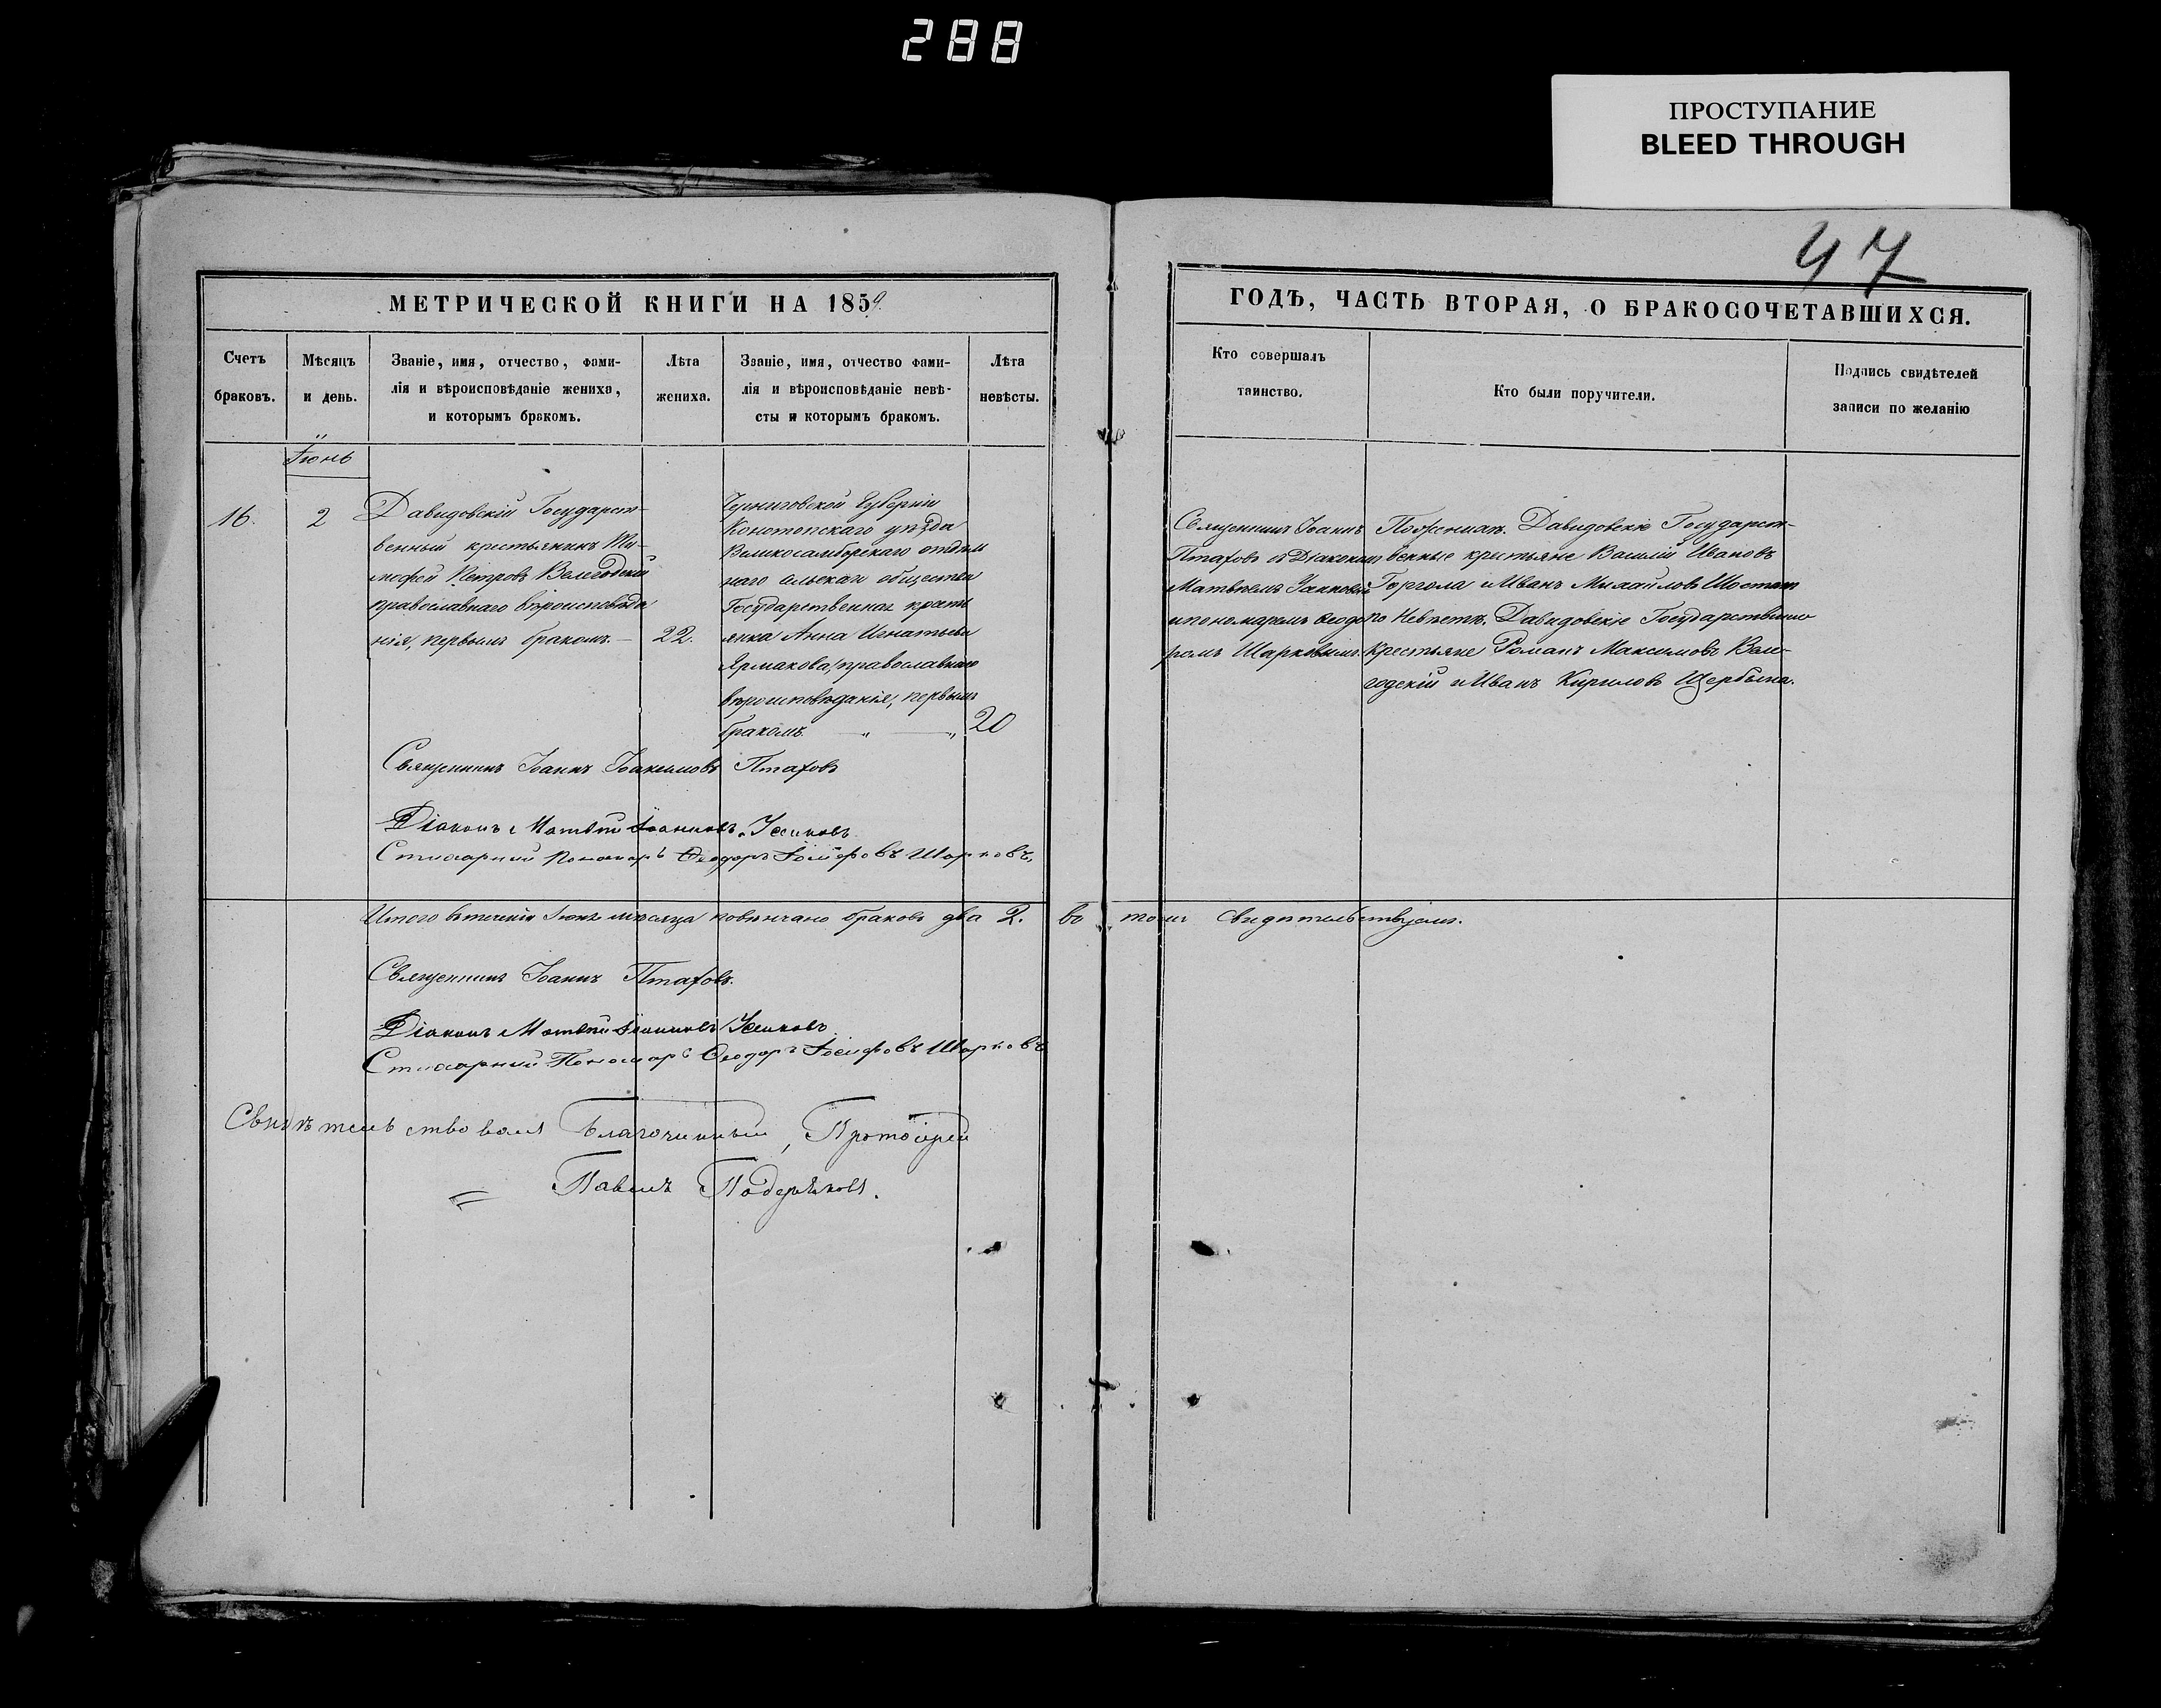 288
ПРОСТУПАНИЕ
BLEED THROUGH
47
МЕТРИЧЕСКОЙ КНИГИ НА 1859
Счетъ
браковъ.
Мѣсяцъ
и день.
Званіе, имя, отчество, фами-
лія и вѣроисповѣданіе жениха,
и которымъ бракомъ.
Лѣта
жениха.
Званіе, имя, отчество фами-
лія и вѣроисповѣданіе невѣ-
сты и которымъ бракомъ.
Лѣта
невѣсты.
Іюнь
16.
2
Давидовскій Государст-
венный крестьянинъ Ти-
мофей Петровъ
православнаго вѣроисповѣда
нія, первымъ бракомъ.—
22.
Черниговской Губерніи
Конотопскаго уѣзда
Великосамборскаго
наго сельскаго общества
Государственная кресть
янка Анна Игнатьева
Ярмакова, православнаго
вѣроисповѣданія, первымъ
бракомъ — „ — „
20
Священникъ Іоаннъ Іоакимовъ Птаховъ
Діаконъ Матвѣй Іоанновъ
Стихарный Пономарь Ѳеодоръ Іосифовъ Шарковъ,
Итого въ теченіи Іюнь мѣсяца повѣнчано браковъ два 2. во томъ свидѣтельствуемъ.
Священникъ Іоаннъ Птаховъ.
Діаконъ Матвѣй Іоанновъ
Стихарный Пономарь Ѳеодоръ Іосифовъ Шарковъ
Свидѣтельствовалъ Благочинный, Протоіерей
Павелъ
ГОДѢ, ЧАСТЬ ВТОРАЯ, О БРАКОСОЧЕТАВШИХСЯ.
Кто совершалъ
таинство.
Кто были поручители.
Подпись свидѣтелей
записи по желанію
Священникъ Іоаннъ
Птаховъ съ Діакономъ
Матвѣемъ
и пономаремъ Ѳеодо
ромъ Шарковымъ.
По женихѣ. Давидовскіе Государст-
венные крестьяне Василій Ивановъ
Горгола и Иванъ Михайловъ
по невѣстѣ. Давидовскіе Государственные
крестьяне Романъ Максимовъ
и Иванъ Кириловъ Щербина.